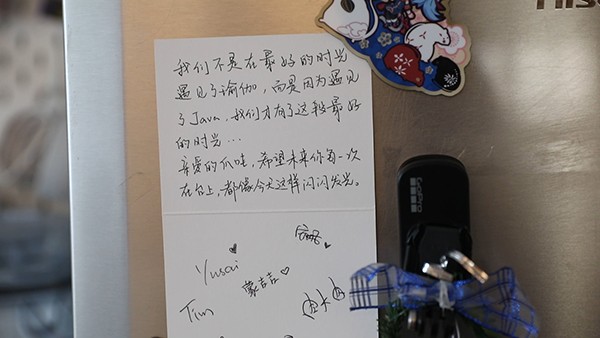 我们不是在最好的时光
遇见了瑜伽，而是因为遇见
了Java，我们才有了这段最好
的时光...
亲爱的爪哇，希望未来你每一次
在台上，都像今天这样闪闪发光。
Yusai
蒙吉吉
Tim
GoPro
HiS